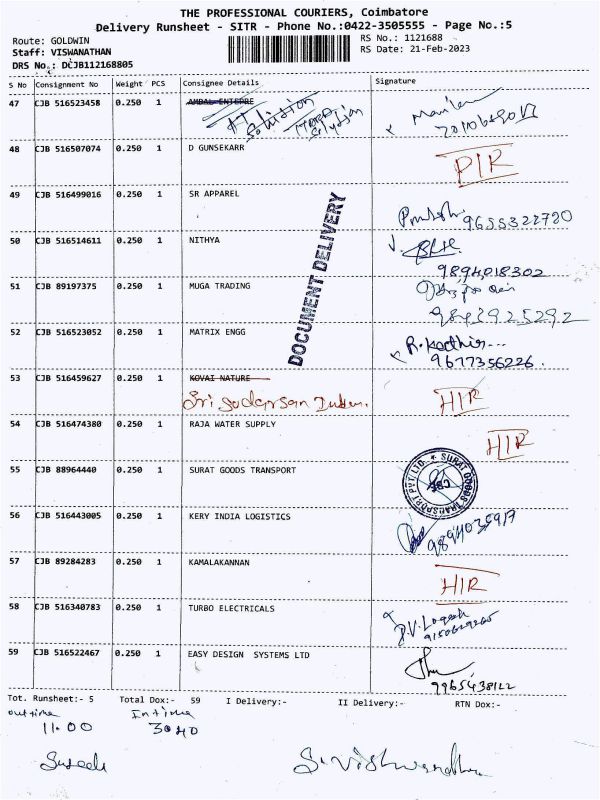 THE PROFESSIONAL COURIERS, Coimbatore
Delivery Runsheet - SITR - Phone No.:0422-3505555 - Page No.:5
Route: GOLDWIN RS No.: 1121688
Staff: VISWANATHAN RS Date: 21-Feb-2023
DRS No.: DCJB112168805
S No Consignment No Weight PCS Consignee Details Signature
47 CJB 516523458 0.250 1 AMBAL ENTEPRE
48 CJB 516507074 0.250 1 D GUNSEKARR PIR
49 CJB 516499016 0.250 1 SR APPAREL
9655322720
50 CJB 516514611 0.250 1 NITHYA
9894018302
51 CJB 89197375 0.250 1 MUGA TRADING
DOCUMENT DELIVERY
52 CJB 516523052 0.250 1 MATRIX ENGG R.Kadhir...
9677356226.
53 CJB 516459627 0.250 1 KOVAI NATURE HIR
Sri Sudarsan
54 CJB 516474380 0.250 1 RAJA WATER SUPPLY HIR
55 CJB 88964440 0.250 1 SURAT GOODS TRANSPORT
SURAT GOODS TRANSPORT PVT. LTD. CBE
56 CJB 516443005 0.250 1 KERY INDIA LOGISTICS
57 CJB 89284283 0.250 1 KAMALAKANNAN HIR
58 CJB 516340783 0.250 1 TURBO ELECTRICALS
59 CJB 516522467 0.250 1 EASY DESIGN SYSTEMS LTD
9965438122
Tot. Runsheet:- 5 Total Dox:- 59 I Delivery:- II Delivery:- RTN Dox:-
out time In time
11.00 3040
S.Viswanathan